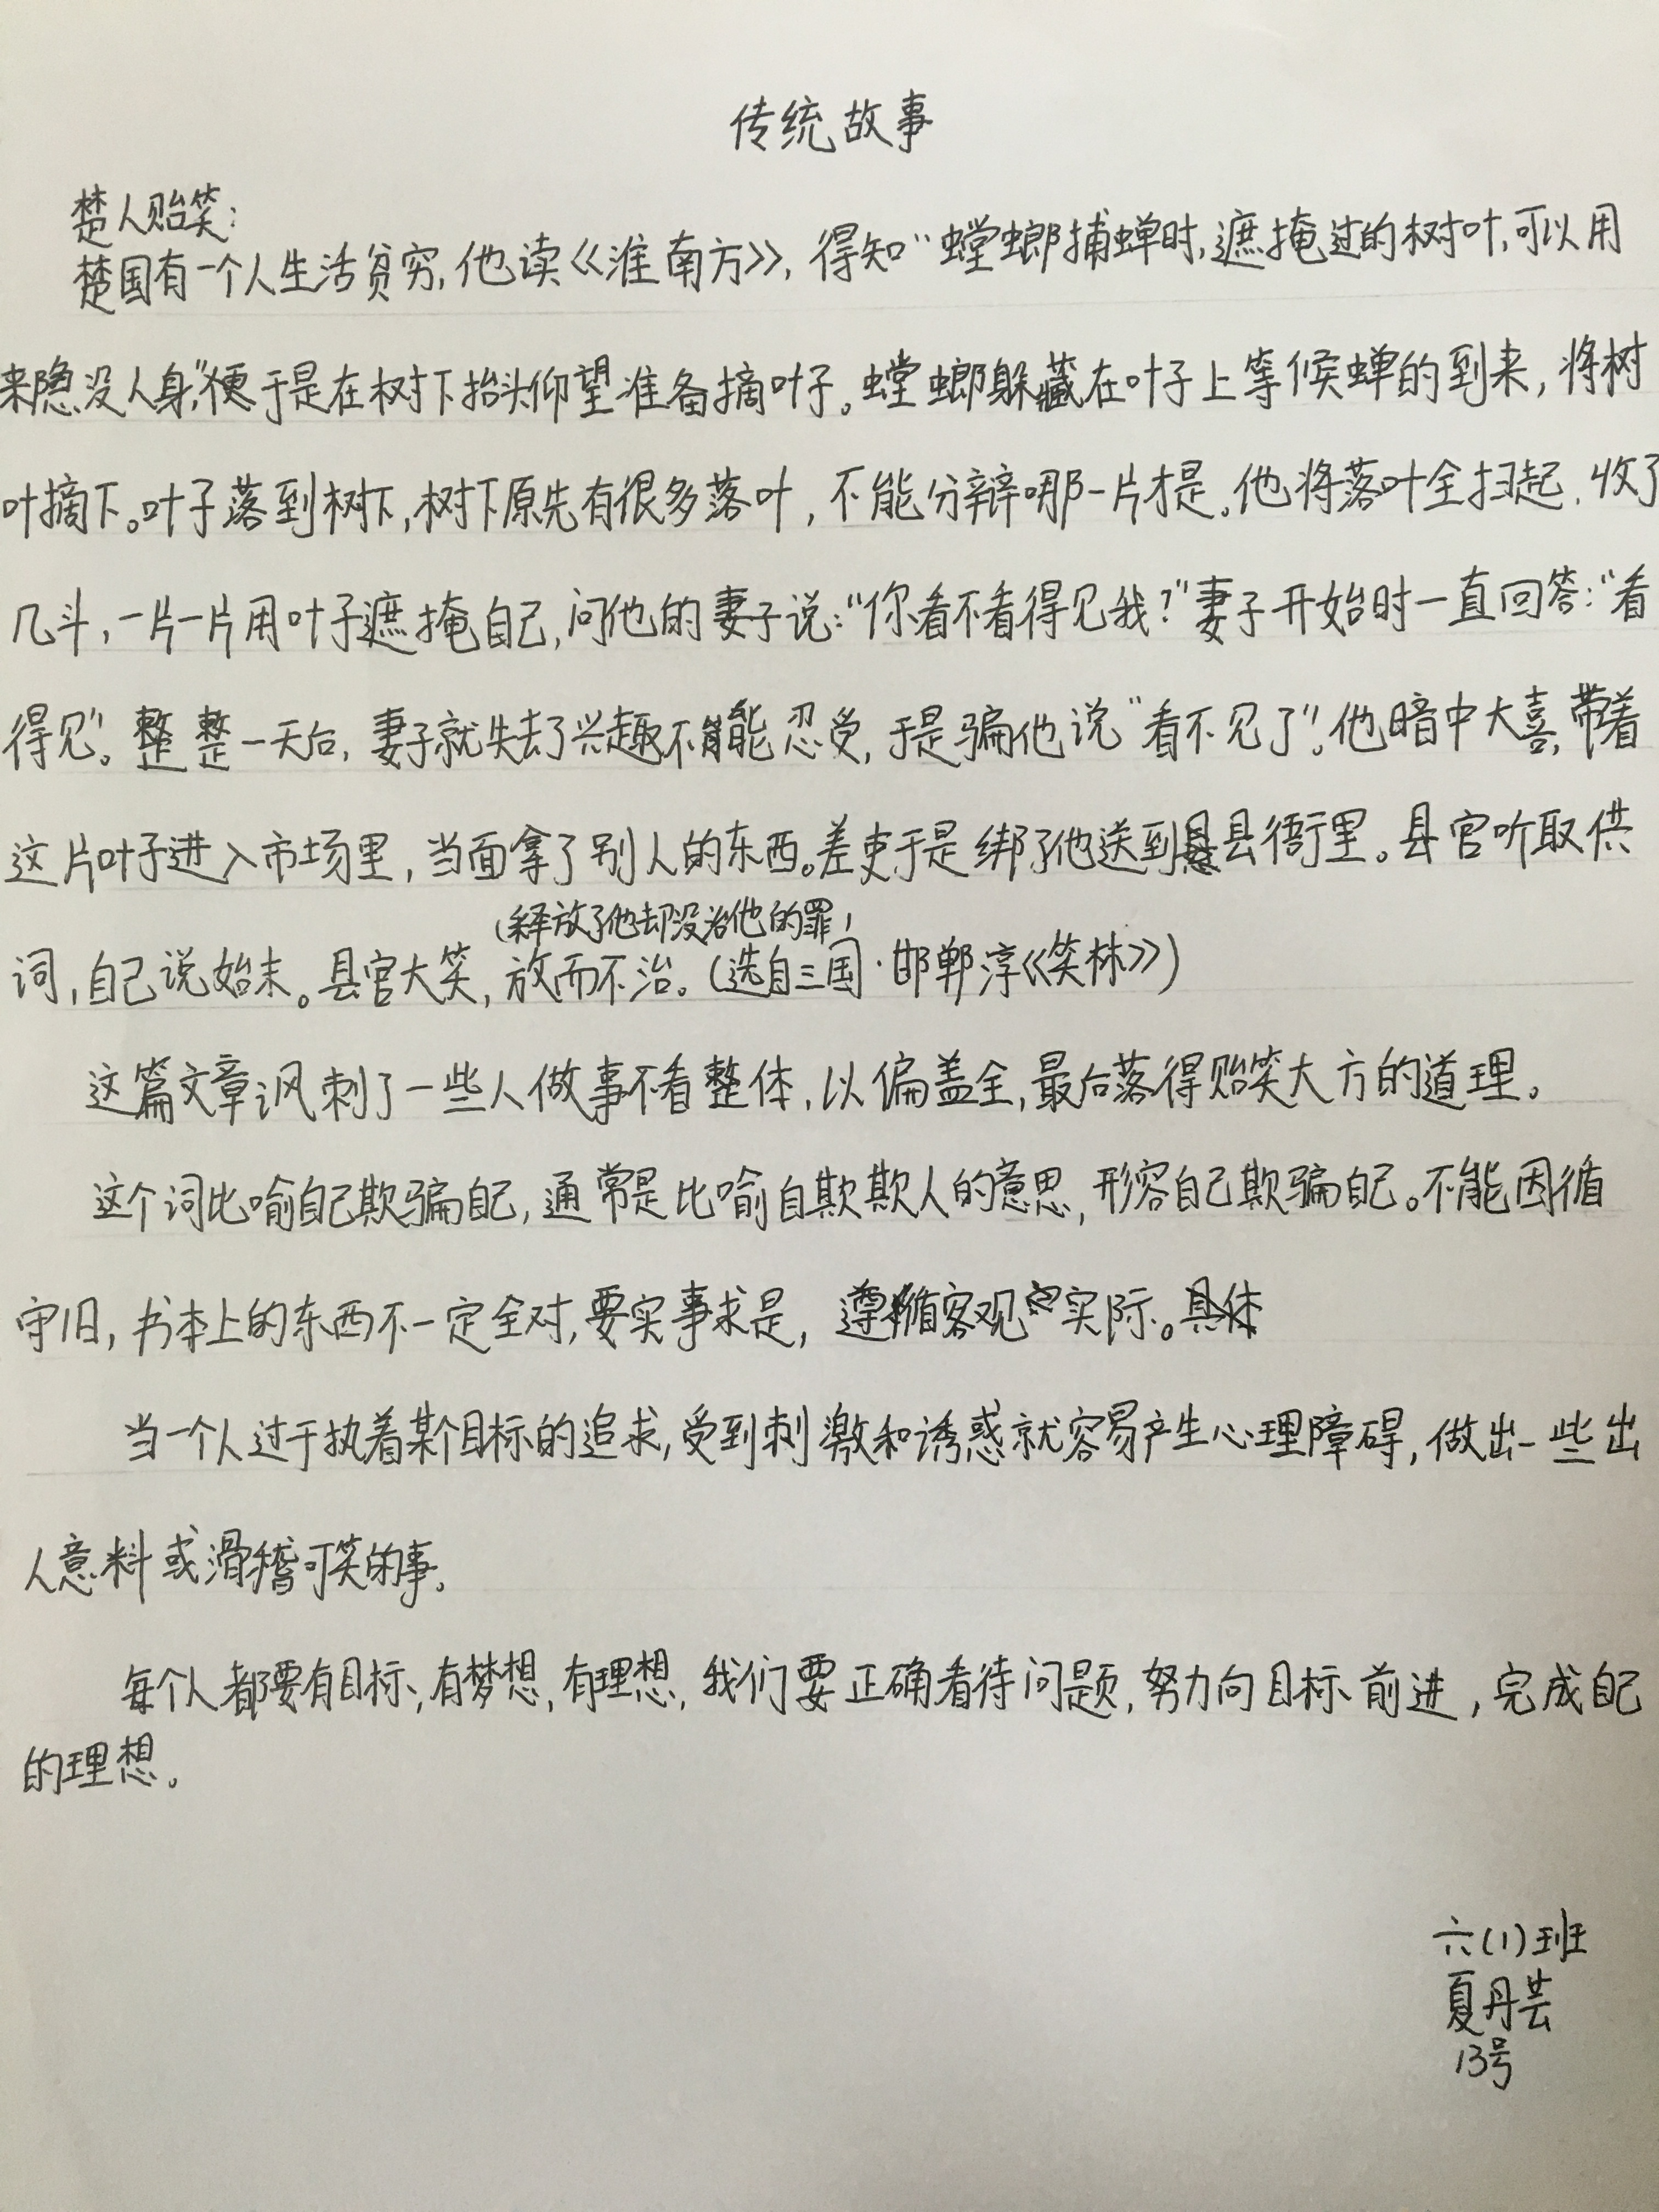 传统故事
楚人贻笑:
楚国有一个人生活贫穷,他读《淮南方》,得知“螳螂捕蝉时,遮掩过的树叶,可以用
来隐没人身,”便于是在树下抬头仰望准备摘叶子。螳螂躲藏在叶子上等候蝉的到来,将树
叶摘下。叶子落到树下,树下原先有很多落叶,不能分辩哪一片才是。他将落叶全扫起,收了
几斗,一片一片用叶子遮掩自己,问他的妻子说:“你看不看得见我?”妻子开始时一直回答:“看
得见”。整整一天后,妻子就失去了兴趣不能忍受,于是骗他说“看不见了”。他暗中大喜,带着
这片叶子进入市场里,当面拿了别人的东西。差吏于是绑了他送到县衙里。县官听取供
(释放了他却没治他的罪)
词,自己说始末。县官大笑,放而不治。(选自三国·邯郸淳《笑林》)
这篇文章讽刺了一些人做事不看整体,以偏盖全,最后落得贻笑大方的道理。
这个词比喻自己欺骗自己,通常是比喻自欺欺人的意思,形容自己欺骗自己。不能因循
守旧,书本上的东西不一定全对,要实事求是,遵循客观实际。
当一个人过于执着某个目标的追求,受到刺激和诱惑就容易产生心理障碍,做出一些出
人意料或滑稽可笑的事。
每个人都要有目标,有梦想,有理想,我们要正确看待问题,努力向目标前进,完成自己
的理想。
六(1)班
夏丹芸
13号